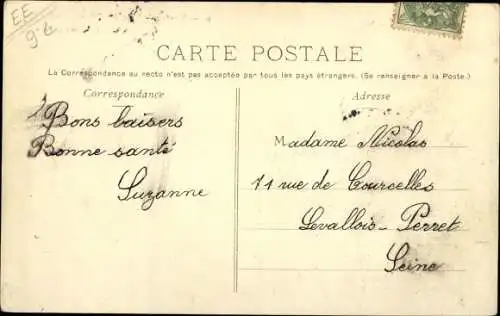 EE
CARTE POSTALE
La Correspondance au recto n'est pas acceptée par tous les pays étrangers. (Se renseigner à la Poste.)
Correspondance
Bons baisers
Bonne santé
Suzanne
Adresse
Madame Nicolas
71 rue de Courcelles
Levallois-Perret
Seine